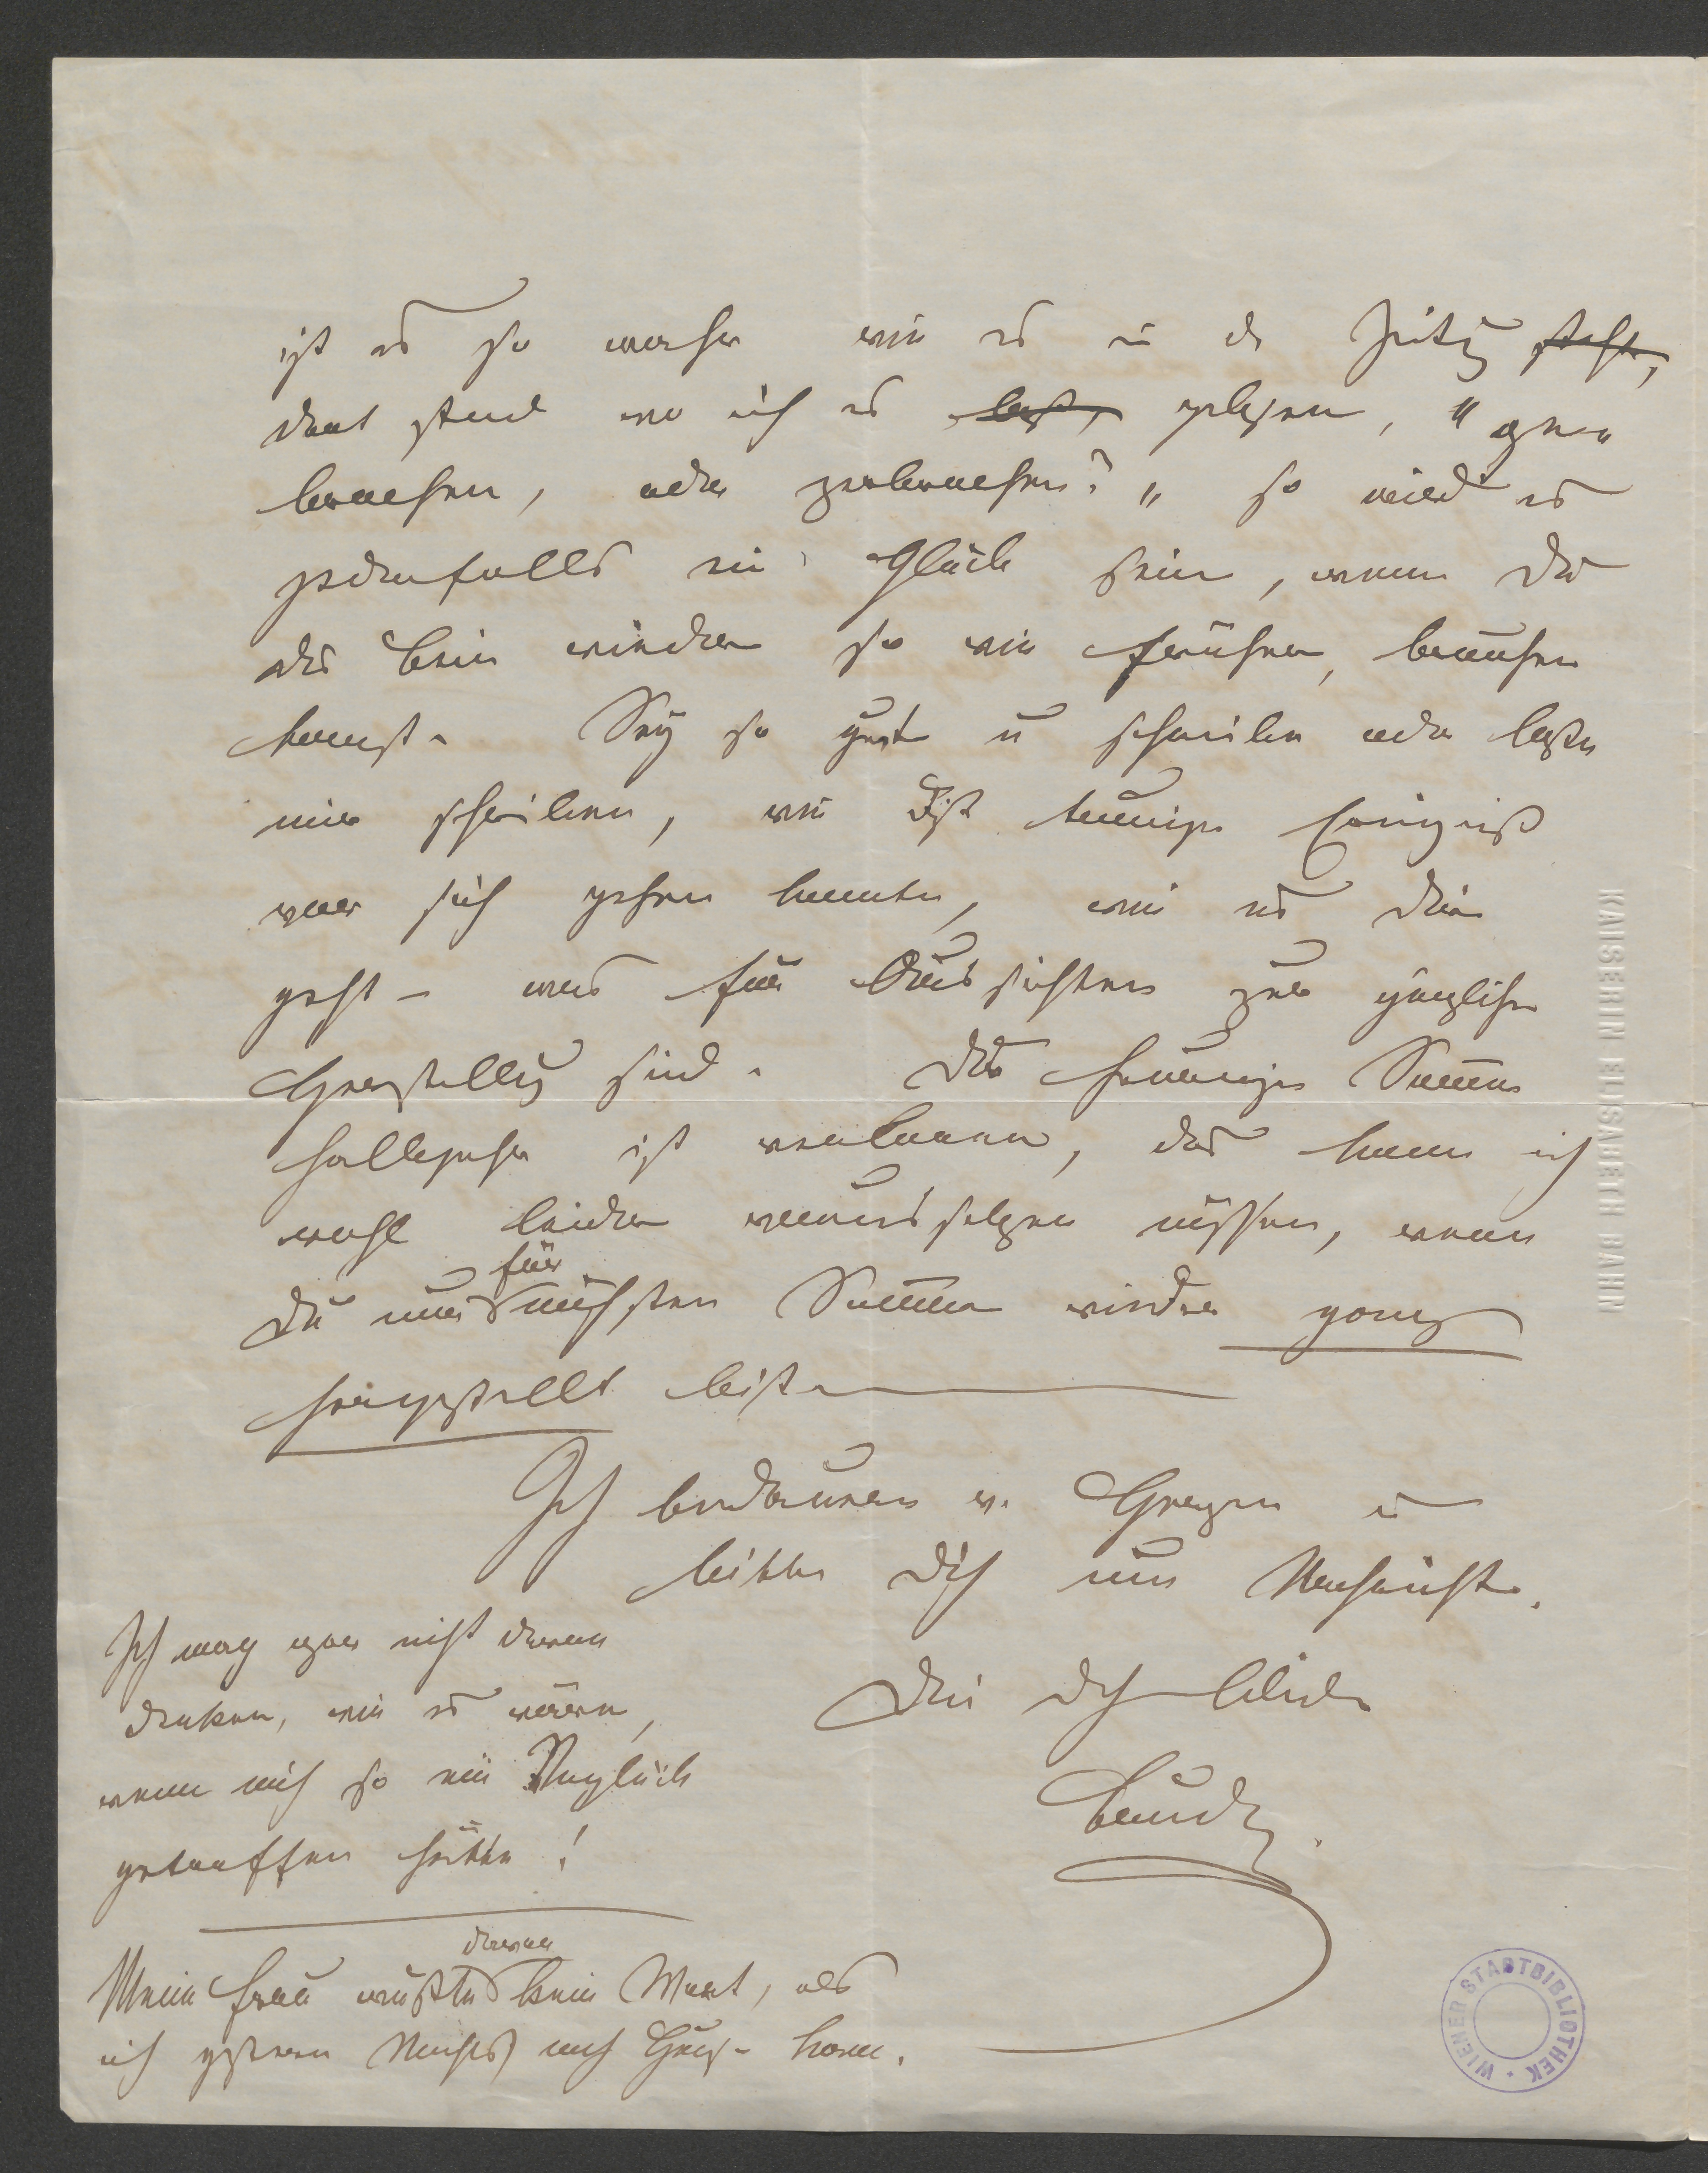 ist es so wahr wie es in der Zeitung steht,
dort stand wo ich es las, gelesen, "ge„
brochen, oder zerbrochen?" so wird es
jedenfalls ein Glück sein, wenn Du
das Bein wieder so wie früher, brauchen
kannst. Sey so gut u schreibe oder lasse
mir schreiben, wie dieß traurige Ereigniß
vor sich gehen konnte, wie es Dir
geht – was für Aussichten zur gänzlichen
Herstellung sind. Das heurige Sommer
halbjahr ist verloren, das kann ich
wohl leider voraussetzen müssen, wenn
Du nur für nächsten Sommer wieder ganz
hergestellt bist.
Ich bedaure v. Herzen u
bitte Dich um Nachricht.
Dein Dich liebender
Ich mag gar nicht daran
denken, wie es wäre,
wenn mich so ein Unglück
getroffen hätte!
Meine Frau wußte davon kein Wort, als
ich gestern Nachts nach Hause kam.
KAISERIN ELISABETH BAHN
WIENER STADTBIBLIOTHEK